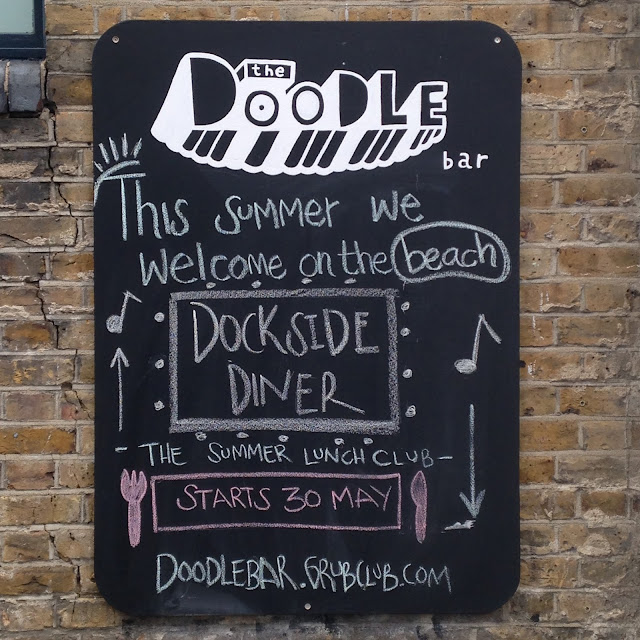 the
DOODLE
bar
This summer we
welcome on the beach
DOCKSIDE
DINER
- THE SUMMER LUNCH CLUB -
STARTS 30 MAY
DOODLEBAR.GRUBCLUB.COM